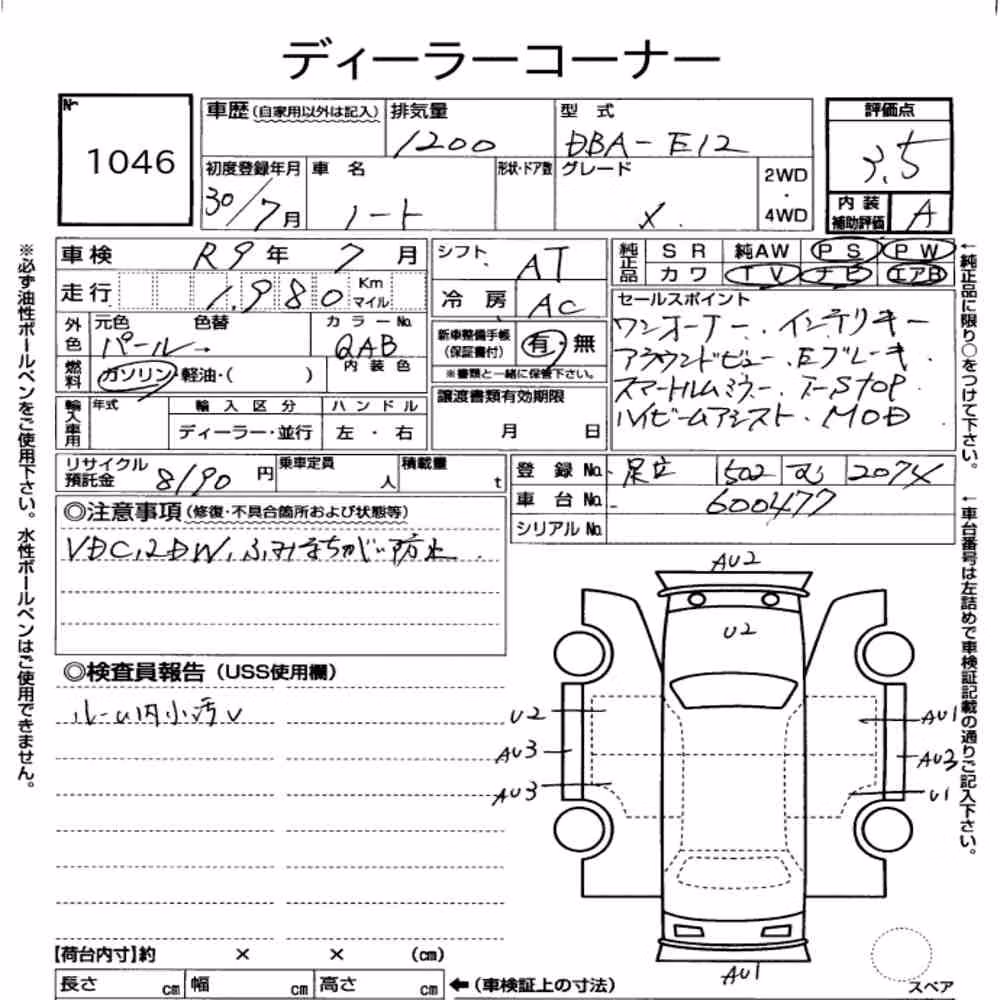 ディーラーコーナー
№
1046
車歴(自家用以外は記入)
排気量
1200
型式
DBA-E12
評価点
3.5
初度登録年月
30/7月
車名
ノート
形状・ドア数
グレード
X
2WD
・
4WD
内装
補助評価
A
車検 R9年 7月
走行 1.980 Km
マイル
外色
元色
パール
色替
カラーNo.
QAB
燃料
ガソリン・軽油・( )
内装色
輸入車用
年式
輸入区分
ディーラー・並行
ハンドル
左・右
シフト AT
冷房 AC
新車整備手帳
(保証書付)
有・無
※書類と一緒に保管下さい。
譲渡書類有効期限
月 日
純正品
SR 純AW PS PW
カワ TV ナビ エアB
セールスポイント
ワンオーナー. インテリキー
アラウンドビュー. Eブレーキ.
スマートルムミラー. I-STOP.
ハイビームアシスト. MOD
リサイクル
預託金
8190円
乗車定員
人
積載量
t
登録No. 足立 502 む 2074
車台No. 600477
シリアルNo.
◎注意事項(修復・不具合箇所および状態等)
VDC,2DW,ふみまちがい防止
◎検査員報告(USS使用欄)
ルーム内小汚レ
AU2
U2
U2
AU3
AU3
AU1
AU3
U1
AU1
【荷台内寸】約 × × (cm)
長さ cm 幅 cm 高さ cm
←(車検証上の寸法)
スペア
※必ず油性ボールペンをご使用下さい。水性ボールペンはご使用できません。
←純正品に限り○をつけて下さい。
←車台番号は左詰めで車検証記載の通りご記入下さい。